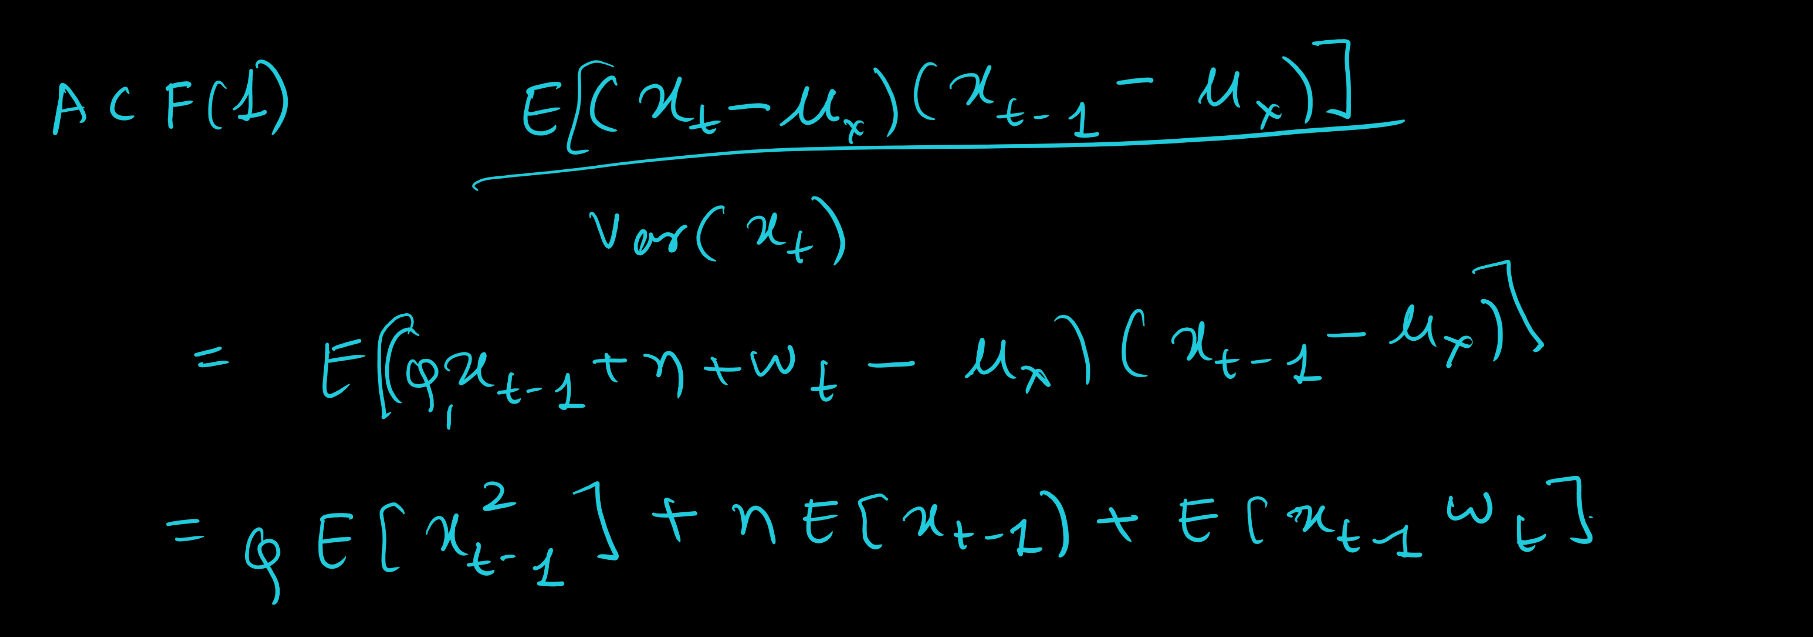 ACF(1) E[(x_t - μ_x)(x_{t-1} - μ_x)]
Var(x_t)
= E[(φ_1 x_{t-1} + η + w_t - μ_x)(x_{t-1} - μ_x)]
= φ E[x_{t-1}^2] + η E[x_{t-1}) + E[x_{t-1} w_t]